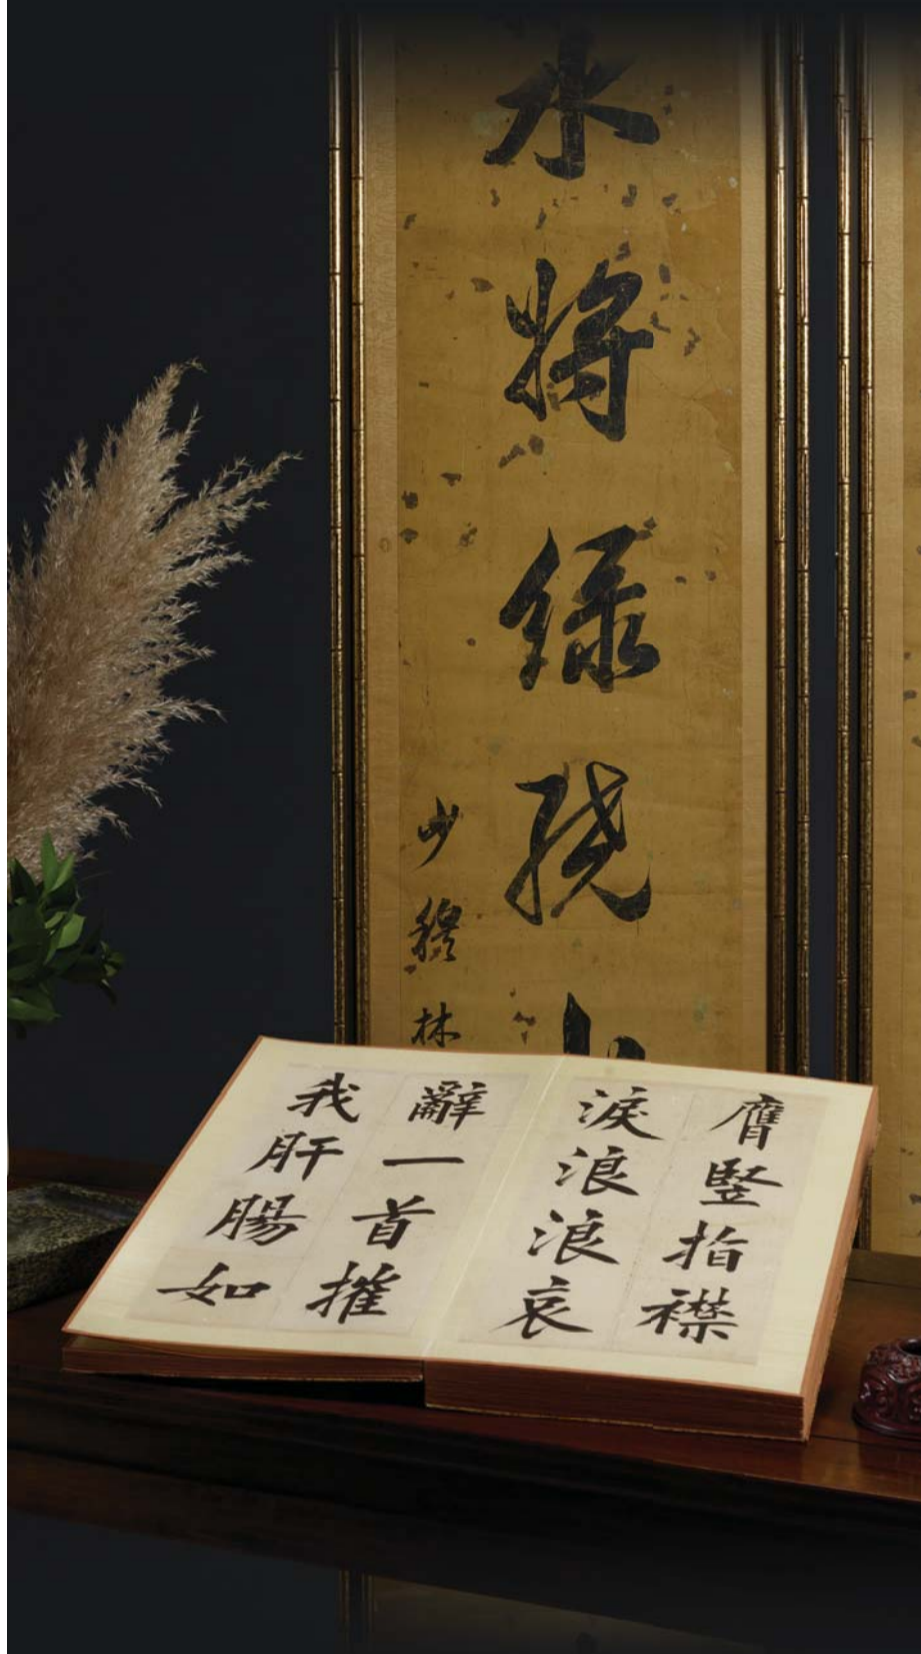 水將綠繞
少穆林
膺竪指襟
淚浪浪哀
辭一首摧
我肝腸如